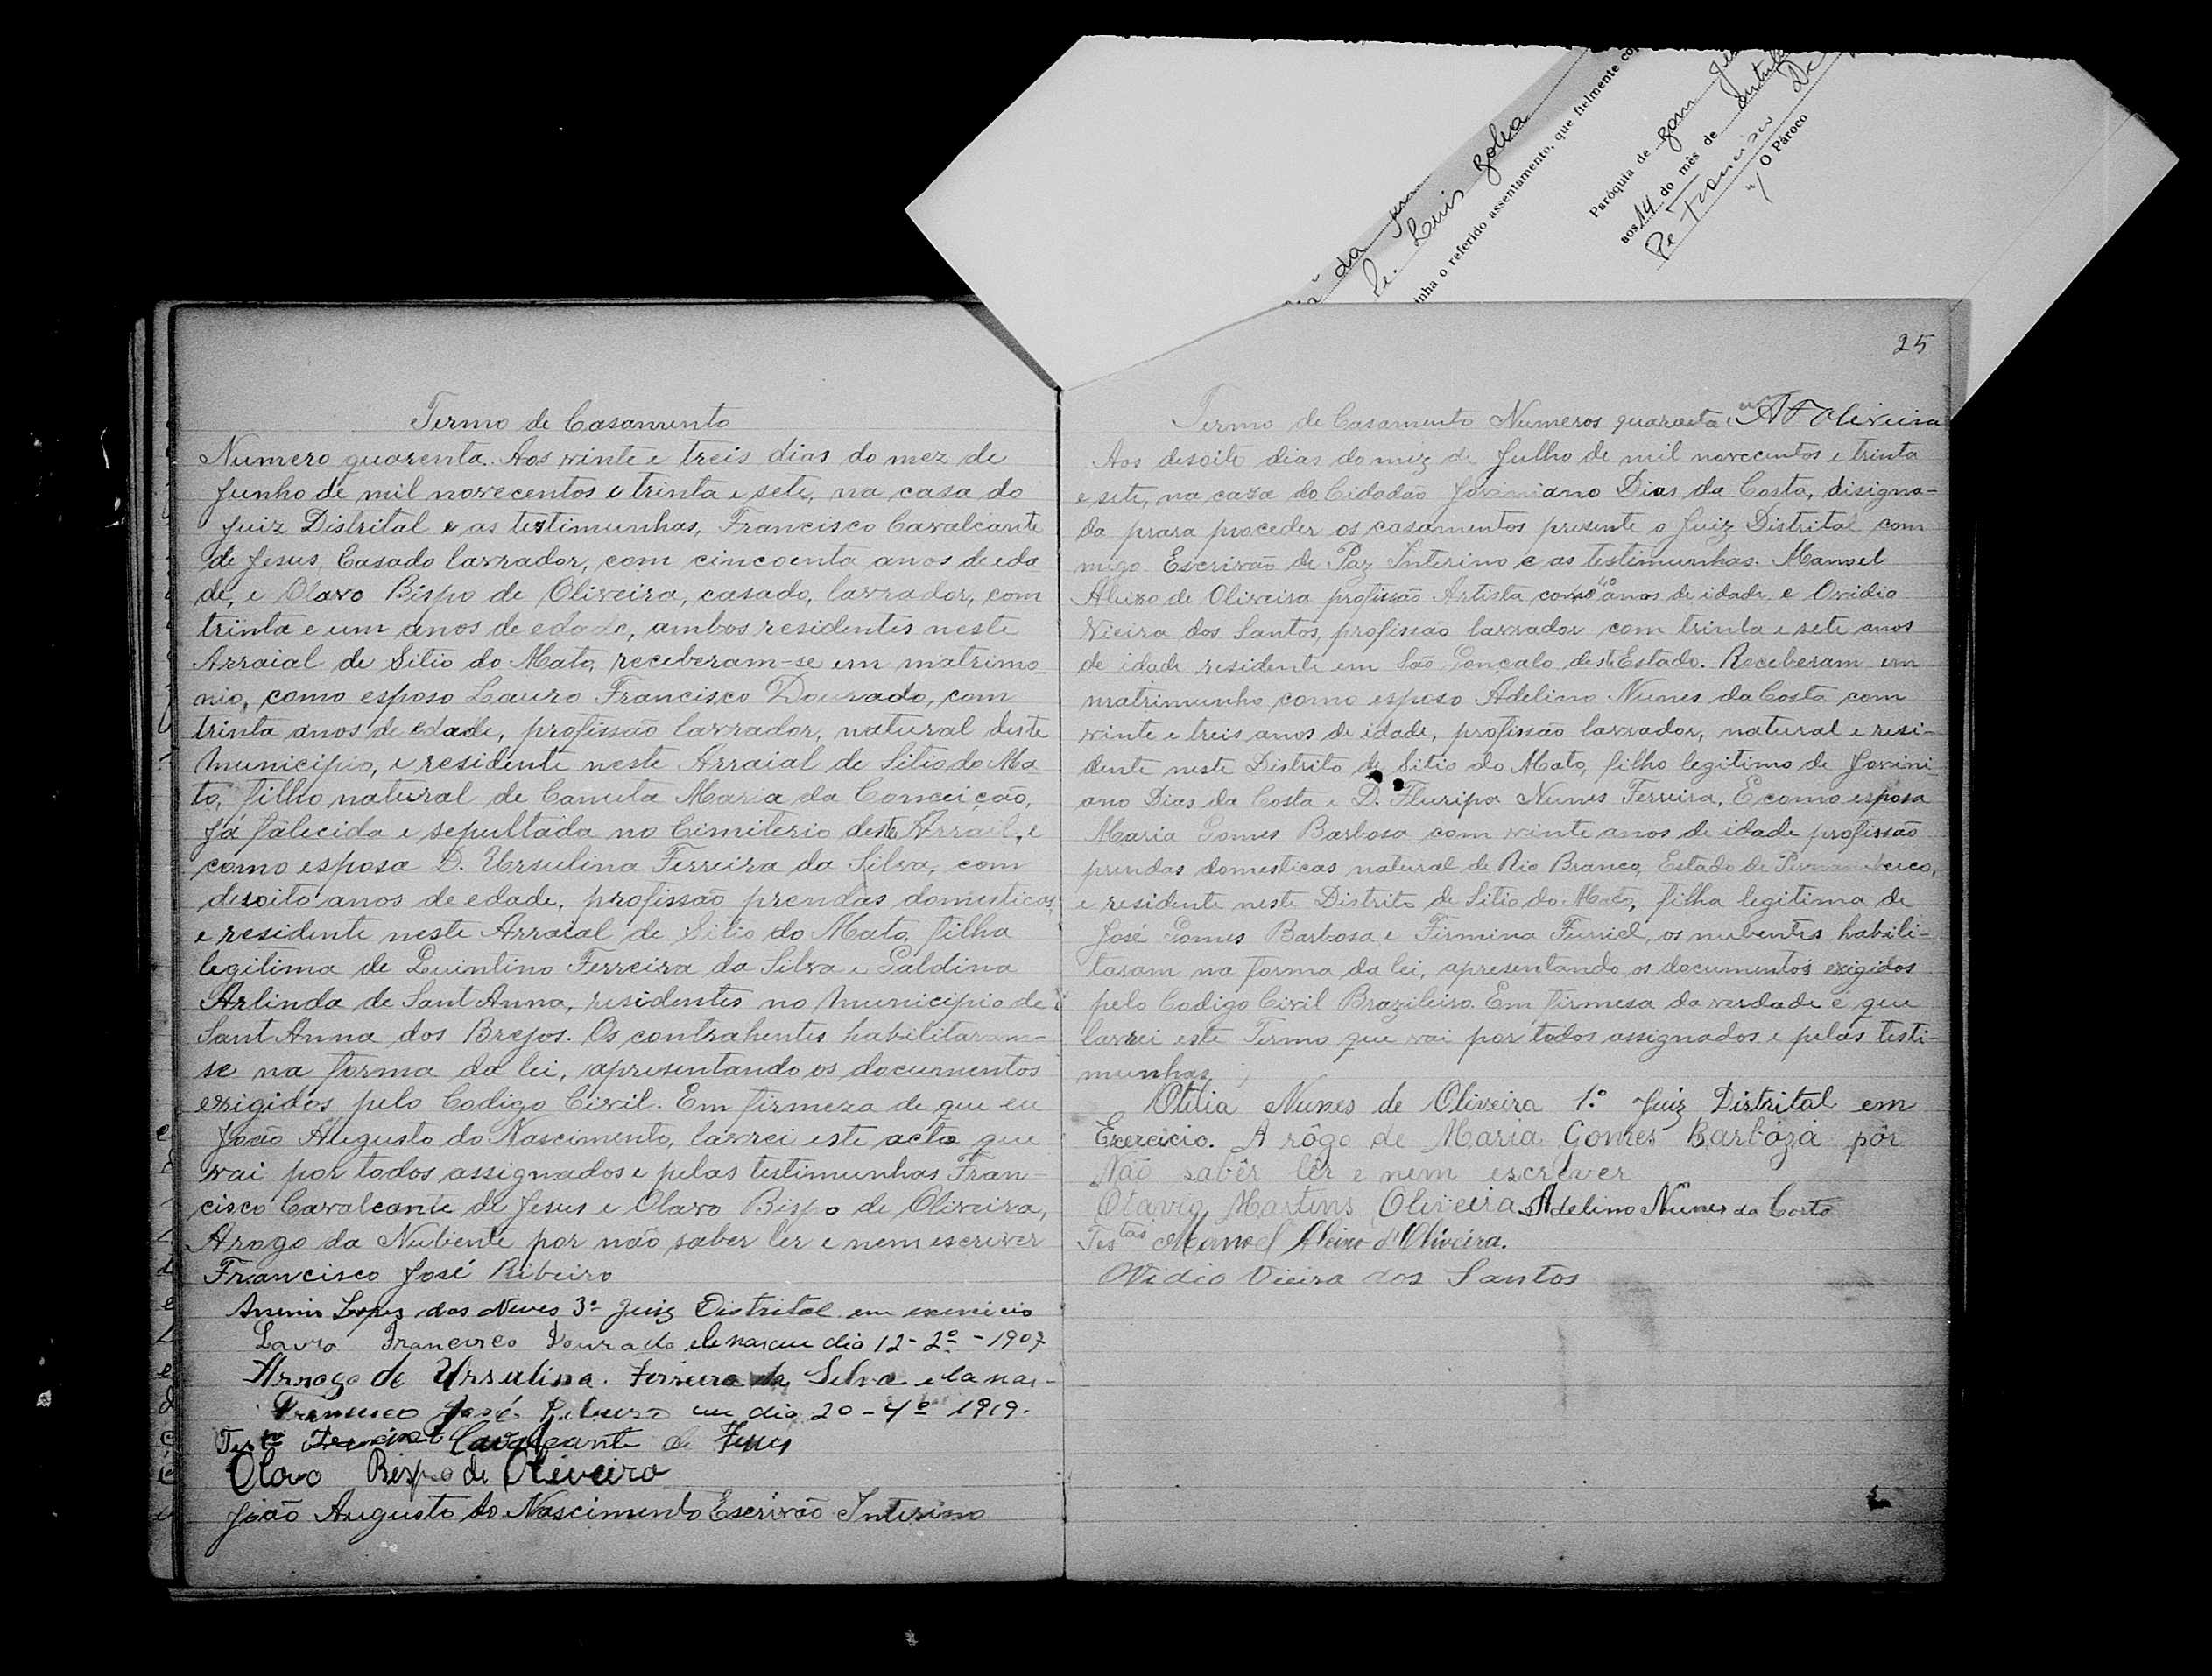 da
Pe. Luis
nha o referido assentamento, que fielmente co
Paróquia de Bom
aos 14 do mês de outub
Pe Francisco De
O Pároco
25
Termo de Casamento
Numero quarenta. Aos vinte e treis dias do mez de
Junho de mil novecentos e trinta e sete, na casa do
Juiz Distrital e as testimunhas, Francisco Cavalcante
de Jesus, Casado lavrador, com cincoenta anos de eda
de, e Olavo Bispo de Oliveira, casado, lavrador, com
trinta e um anos de edade, ambos residentes neste
Arraial de Sitio do Mato, receberam-se em matrimo
nio, como esposo Lauro Francisco Dourado, com
trinta anos de edade, profissão lavrador, natural deste
Municipio, e residente neste Arraial de Sitio do Ma
to, filho natural de Canuta Maria da Conceição,
já falecida e sepultada no Cimiterio deste Arrael, e
como esposa D. Ursulina Ferreira da Silva, com
desoito anos de edade, profissão prendas domesticas,
e residente neste Arraial de Sitio do Mato, filha
legitima de Quintino Ferreira da Silva e Galdina
Arlinda de Sant Anna, residentes no Municipio de
Sant Anna dos Brejos. Os contrahentes habilitaram-
se na forma da lei, apresentando os documentos
exigidos pelo Codigo Civil. Em firmeza de que eu
João Augusto do Nascimento, lavrei este acto que
vai por todos assignados e pelas testimunhas Fran-
cisco Cavalcante de Jesus e Olavo Bispo de Oliveira,
Arogo da Nubente por não saber ler e nem escriver
Francisco José Ribeiro
Lopes das Neves 3º Juiz Distrital em exercicio
Lauro Francisco Dourado ele nasceu dia 12-2º-1907
Arrogo de Ursulina Ferreira da Silva ela nas-
Francisco José Ribeiro ceu dia 20-4º 1919.
Testas Francisco Cavalcante de Jesus
Olavo Bispo de Oliveira
João Augusto do Nascimento Escrivão Interino
Termo de Casamento Numeros quarenta e um A F Oliveira
Aos desoito dias do mez de Julho de mil novecentos e trinta
e sete, na casa do Cidadão Joviniano Dias da Costa, disigna-
da prara proceder os casamentos presente o Juiz Distrital com
migo Escrivão de Paz Interino e as testimunhas. Manoel
Aleixo de Oliveira profissão Artista com 40 anos de idade e Ovidio
Vieira dos Santos, profissão lavrador com trinta e sete anos
de idade residente em São Gonçalo deste Estado. Receberam em
matrimunho como esposo Adelino Nunes da Costa com
vinte e treis anos de idade, profissão lavrador, natural e resi-
dente neste Distrito de Sitio do Mato, filho legitimo de Jovini
ano Dias da Costa e D. Fluripa Nunes Ferreira, E como esposa
Maria Gomes Barbosa com vinte anos de idade profissão
prendas domesticas natural de Rio Branco, Estado de Pernambuco,
e residente neste Distrito de Sitio do Mato, filha legitima de
José Gomes Barbosa e Firmina Furriel, os nubentes habili-
taram na forma da lei, apresentando os documentos exigidos
pelo Codigo Civil Brazileiro. Em firmesa da verdade e que
lavrei este Termo que vai por todos assignados e pelas testi-
munhas
Otilia Nunes de Oliveira 1º Juiz Distrital em
Exercicio. A rôgo de Maria Gomes Barbóza pôr
Não sabêr lêr e nem escrever
Otavio Martins Oliveira Adelino Nunes da Costa
Testas Manoel Aleixo d'Oliveira.
Ovidio Vieira dos Santos